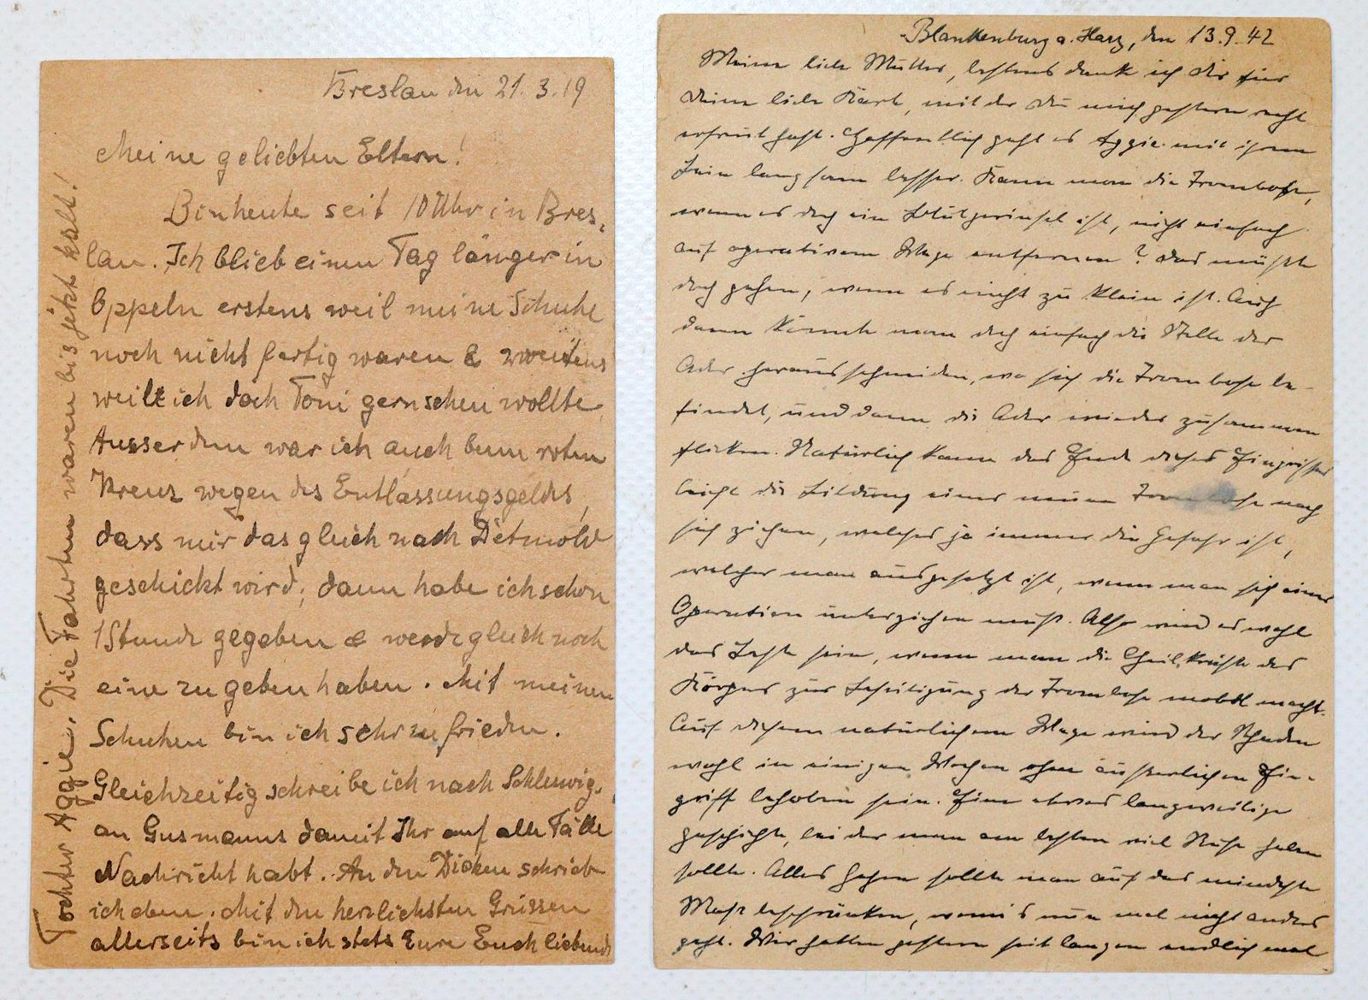 Breslau den 21.3.19
Meine geliebten Eltern!
Bin heute seit 10 Uhr in Bres-
lau. Ich blieb einen Tag länger in
Oppeln erstens weil meine Schuhe
noch nicht fertig waren & zweitens
weil ich doch Toni gern sehen wollte.
Ausserdem war ich auch beim roten
Kreuz wegen des Entlassungsgeldes,
dass mir das gleich nach Detmold
geschickt wird; dann habe ich schon
1 Stunde gegeben & werde gleich noch
eine zu geben haben. Mit meinen
Schuhen bin ich sehr zufrieden.
Gleichzeitig schreibe ich nach Schleswig,
an Gusmanns damit Ihr auf alle Fälle
Nachricht habt. An den Dicken schrieb
ich eben. Mit den herzlichsten Grüssen
allerseits bin ich stets Eure Euch liebende
Tochter Aggie. Die Fahrten waren bis jetzt kalt!
Blankenburg a. Harz, den 13.9.42
Meine liebe Mutter, bestens dank ich dir für
deine liebe Karte, mit der du mich gestern recht
erfreut hast. Hoffentlich geht es Aggie mit ihrem
Bein langsam besser. Kann man die Trombose,
wenn es doch ein Blutgerinsel ist, nicht einfach
auf operativem Wege entfernen? Das müsste
doch gehen, wenn es nicht zu klein ist. Auch
dann könnte man doch einfach die Stelle der
Ader herausschneiden, wo sich die Trombose be-
findet, und dann die Ader wieder zusammen
flicken. Natürlich kann das Ende dieses Eingriffes
leicht die Bildung einer neuen Trombose nach
sich ziehen, welches ja immer die Gefahr ist,
welcher man ausgesetzt ist, wenn man sich einer
Operation unterziehen muss. Also wird es wohl
das Beste sein, wenn man die Heilkräfte des
Körpers zur Beseitigung der Trombose mobil macht.
Auf diesem natürlichem Wege wird der Schaden
wohl in einigen Wochen ohne äusserlichen Ein-
griff behoben sein. Eine etwas langweilige
Geschichte, bei der man am besten viel Ruhe haben
sollte. Alles Gehen sollte man auf das mindeste
Mass beschränken, wenn's nun mal nicht anders
geht. Wir hatten gestern seit langem endlich mal